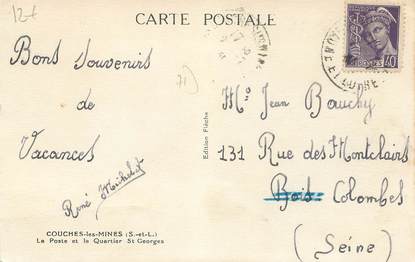 12f
CARTE POSTALE
Bons Souvenirs
de
Vacances
René Michelot
71
Edition Flèche
Mr Jean Bouchy
131 Rue des Montclairs
Bois Colombes
(Seine)
40
COUCHES-les-MINES (S.-et-L.)
La Poste et le Quartier St Georges